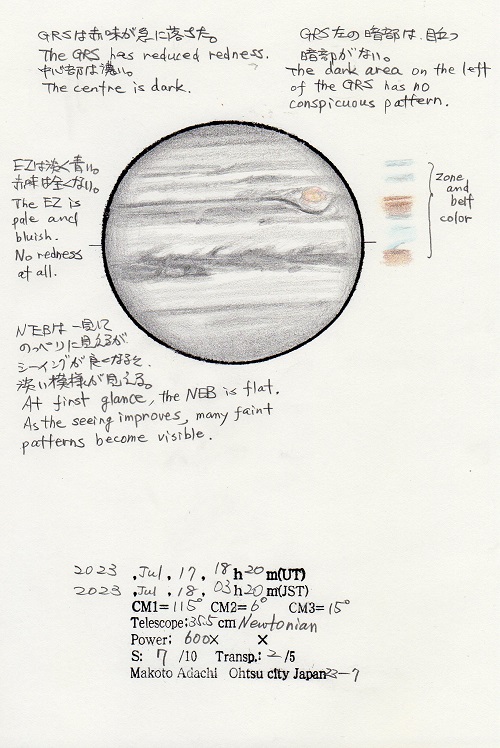 GRSは赤味が急に落ちた。
The GRS has reduced redness.
中心部は濃い。
The centre is dark.
GRS左の暗部は、目立つ
暗部がない。
The dark area on the left
of the GRS has no
conspicuous pattern.
EZは淡く青い。
赤味は全くない。
The EZ is
pale and
bluish.
No redness
at all.
zone
and
belt
color
NEBは一見して
のっぺりに見えるが
シーイングが良くなると、
淡い模様が見える。
At first glance, the NEB is flat.
As the seeing improves, many faint
patterns become visible.
2023 ,Jul, 17, 18h20m(UT)
2023 ,Jul, 18, 03h20m(JST)
CM1=115° CM2=6° CM3=15°
Telescope:35.5cm Newtonian
Power: 600X X
S: 7 /10 Transp.: 2 /5
Makoto Adachi Ohtsu city Japan 23-7